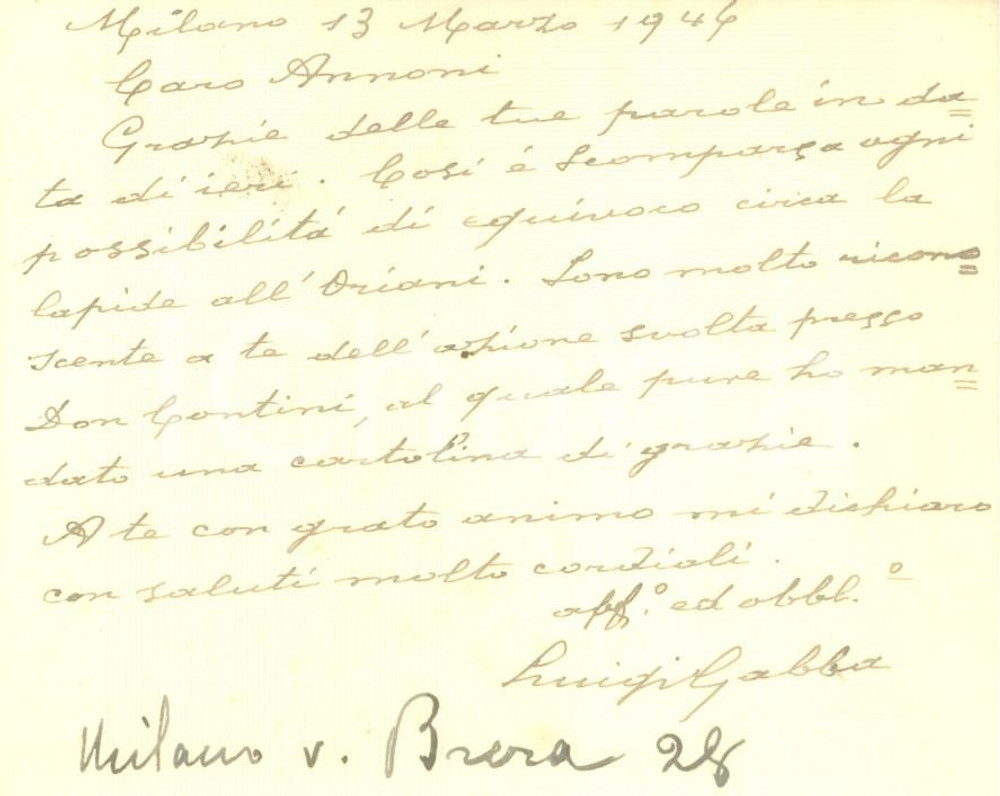 Milano 13 Marzo 1946
Caro Annoni
Grazie delle tue parole in da=
ta di ieri. Così è scomparsa ogni
possibilitá di equivoco circa la
lapide all'Oriani. Sono molto ricono=
scente a te dell'azione svolta presso
Don Contini, al quale pure ho man=
dato una cartolina di grazie.
A te con grato animo mi dichiaro
con saluti molto cordiali.
aff.º ed obbl.º
Luigi Gabba
Milano v. Brera 28